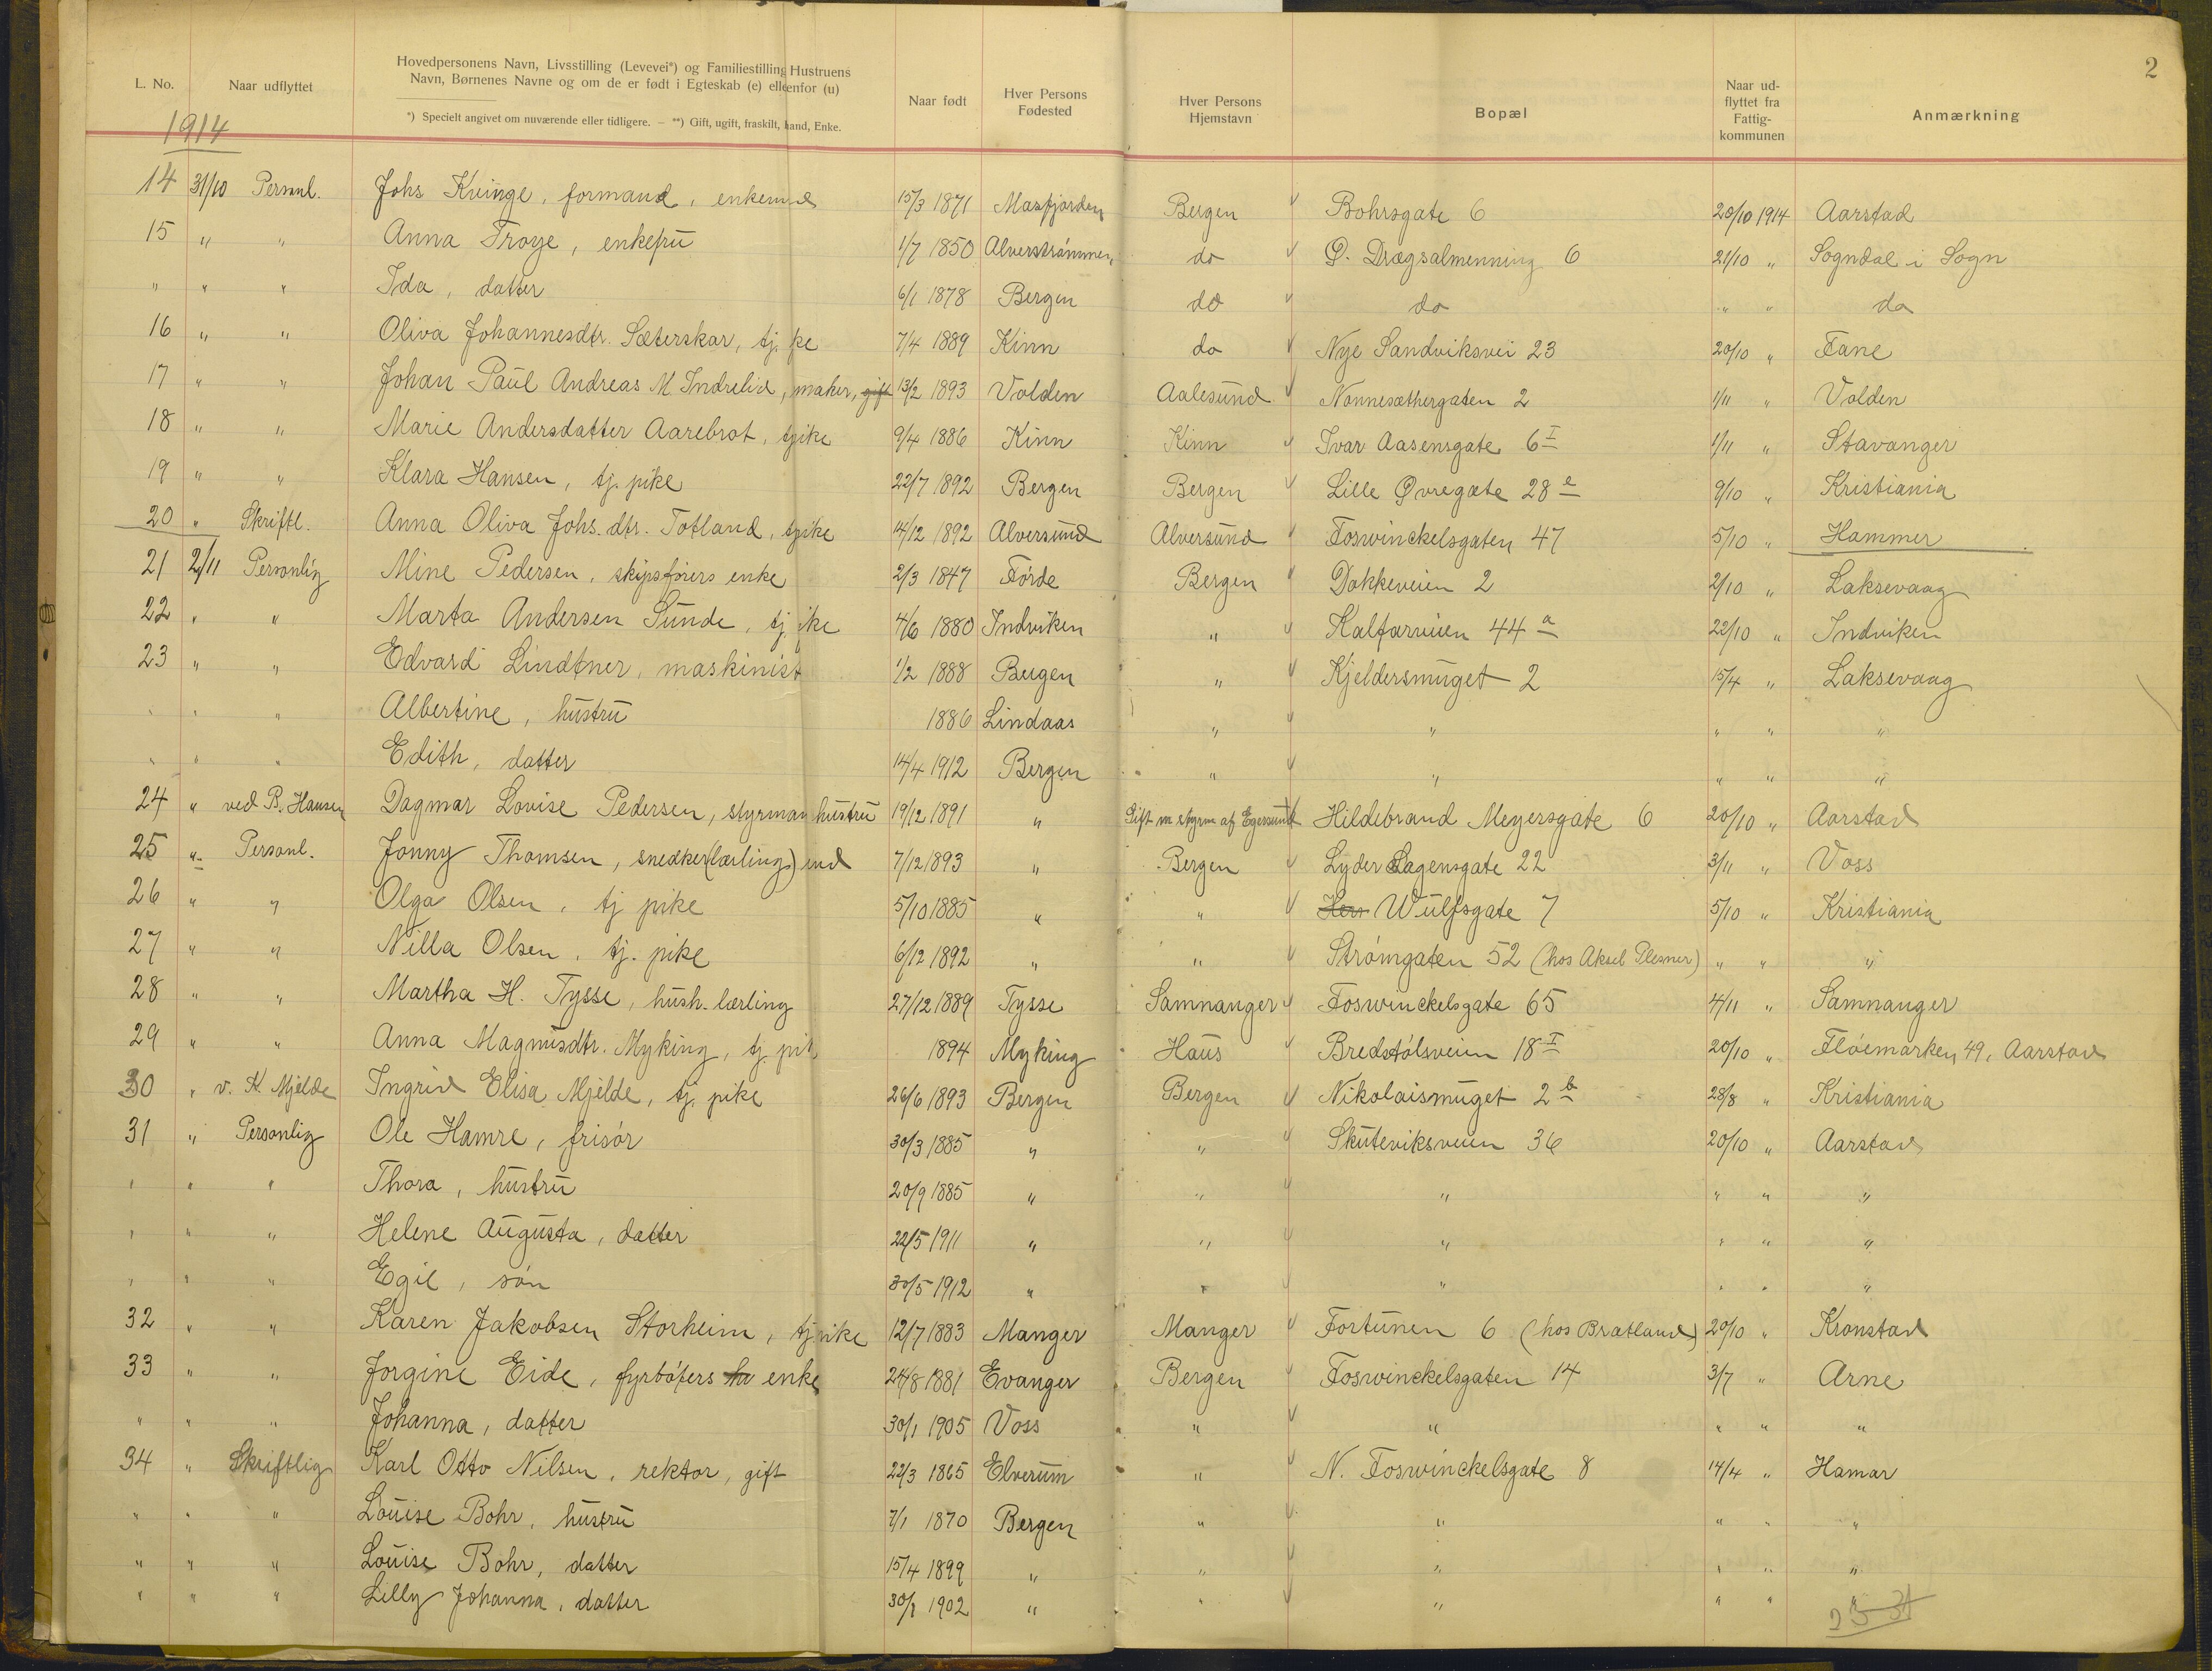 2
L. No. Naar udflyttet Hovedpersonens Navn, Livsstilling (Levevei*) og Familiestilling Hustruens Navn, Børnenes Navne og om de er født i Egteskab (e) ell enfor (u) Naar født Hver Persons Fødested Hver Persons Hjemstavn Bopæl Naar ud-flyttet fra Fattig-kommunen Anmærkning
*) Specielt angivet om nuværende eller tidligere. — **) Gift, ugift, fraskilt, mand, Enke.
1914
14 31/10 Personl. Johs Kvinge, formand, enkemd 15/3 1871 Masfjorden Bergen Bohrsgate 6 20/10 1914 Aarstad
15 " " Anna Troye, enkefru 1/7 1850 Alverstrømmen do Ø. Drægsalmenning 6 21/10 " Sogndal i Sogn
" " " Ida, datter 6/1 1878 Bergen do do " " do
16 " " Oliva Johannesdtr. Sæterskar, tj. pke 7/4 1889 Kinn do Nye Sandviksvei 23 20/10 " Fane
17 " " Johan Paul Andreas M Indrelid, maker, gift 13/2 1893 Volden Aalesund Nonnesæthergaten 2 1/11 " Volden
18 " " Marie Andersdatter Aarebrot, tjpike 9/4 1886 Kinn Kinn Ivar Aasensgate 6 I 1/11 " Stavanger
19 " " Klara Hansen, tj. pike 22/7 1892 Bergen Bergen Lille Øvregate 28 e 9/10 " Kristiania
20 " Skriftl. Anna Oliva Johs. dtr. Totland, tjpike 14/12 1892 Alversund Alversund Foswinckelsgaten 47 5/10 " Hammer
21 2/11 Personlig Mine Pedersen, skipsførers enke 2/3 1847 Førde Bergen Dokkeveien 2 2/10 " Laksevaag
22 " " Marta Andersen Sunde, tj. pike 4/6 1880 Indviken " Kalfarveien 44 a 22/10 " Indviken
23 " " Edvard Lindtner, maskinist 1/2 1888 Bergen " Kjeldersmuget 2 15/4 " Laksevaag
" " " Albertine, hustru 1886 Lindaas " " " " "
" " " Edith, datter 14/4 1912 Bergen " " " " "
24 " ved B. Hansen Dagmar Lovise Pedersen, styrman hustru 19/12 1891 " Gift m styrm af Egersund Hildebrand Meyersgate 6 20/10 " Aarstad
25 " Personl. Jonny Thomsen, snedker(lærling) end 7/12 1893 " Bergen Lyder Sagensgate 22 3/11 " Voss
26 " " Olga Olsen, tj pike 5/10 1885 " " Herr Wulfsgate 7 5/10 " Kristiania
27 " " Nilla Olsen, tj. pike 6/12 1892 " " Strømgaten 52 (hos Aksel Plesner) " " "
28 " " Martha H. Tysse, hush. lærling 27/12 1889 Tysse Samnanger Foswinckelsgate 65 4/11 " Samnanger
29 " " Anna Magnusdtr. Myking, tj. pik 1894 Myking Haus Bredstølsveien 18 I 20/10 " Fløemarken 49, Aarstad
30 " v. K. Mjelde Ingrid Elisa Mjelde, tj. pike 26/6 1893 Bergen Bergen Nikolaismuget 2 b 28/8 " Kristiania
31 " Personlig Ole Hamre, frisør 30/3 1885 " " Skuteviksveien 36 20/10 " Aarstad
" " " Thora, hustru 20/9 1885 " " " " " "
" " " Helene Augusta, datter 22/5 1911 " " " " " "
" " " Egil, søn 30/5 1912 " " " " " "
32 " " Karen Jakobsen Storheim, tjpike 12/7 1883 Manger Manger Fortunen 6 (hos Bratland) 20/10 " Kronstad
33 " " Jorgine Eide, fyrbøters hu enke 24/8 1881 Evanger Bergen Foswinckelsgaten 14 3/7 " Arne
" " " Johanna, datter 30/1 1905 Voss " " " " "
34 " Skriftlig Karl Otto Nilsen, rektor, gift 22/3 1865 Elverum " N. Foswinckelsgate 8 14/4 " Hamar
" " " Louise Bohr, hustru 7/1 1870 Bergen " " " " "
" " " Louise Bohr, datter 15/4 1899 " " " " " "
" " " Lilly Johanna, datter 30/8 1902 " " " " " "